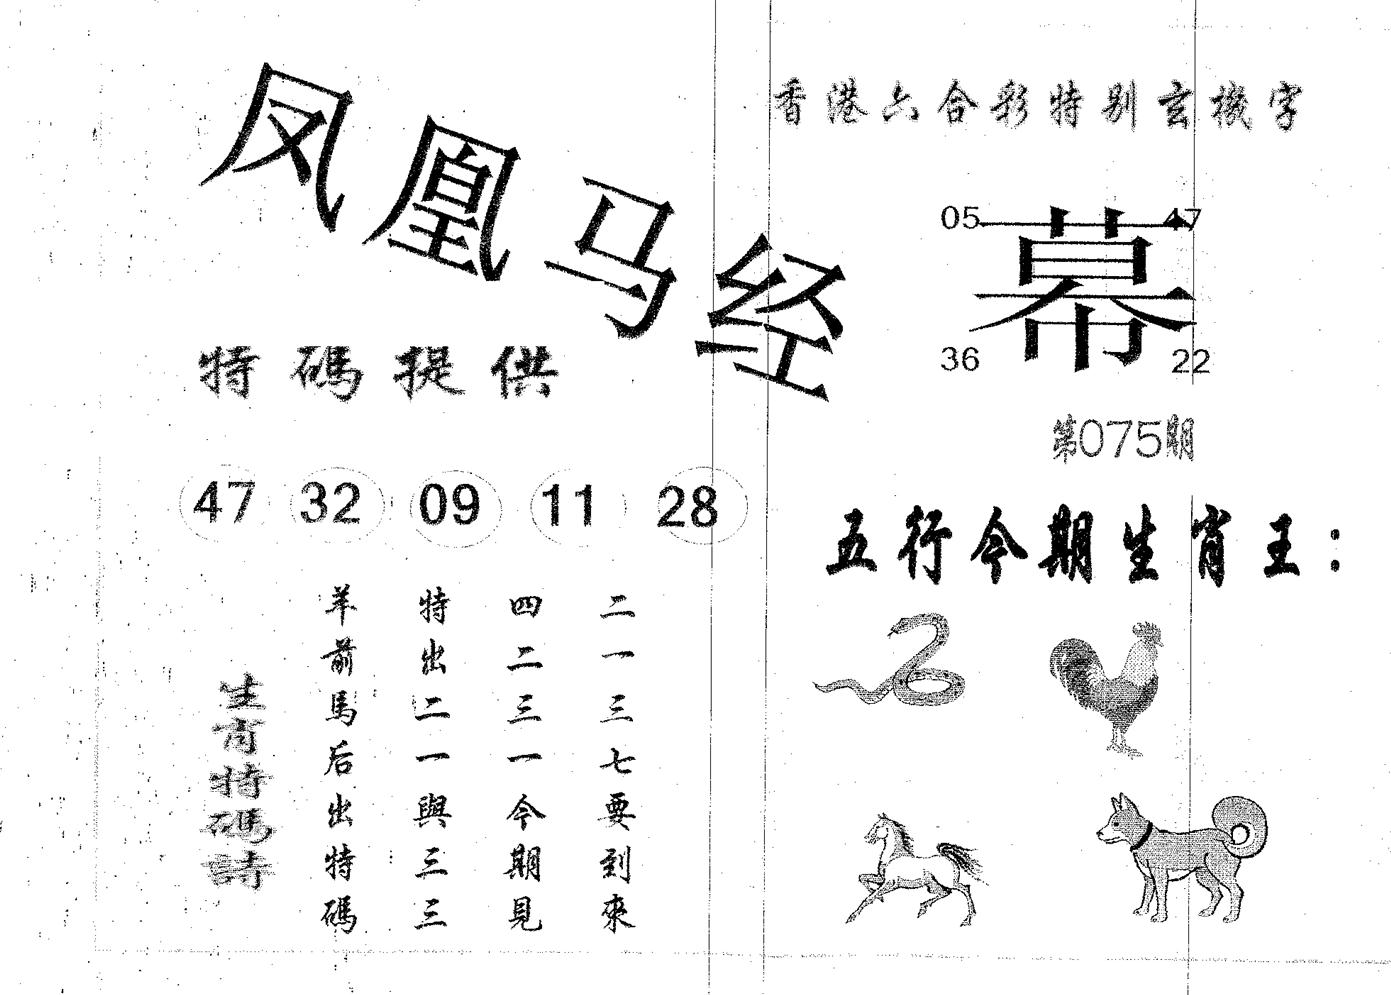 凤凰马经
特碼提供
47 32 09 11 28
生肖特碼詩
羊前馬后出特碼
特出二一與三三
四二三一今期見
二一三七要到來
香港六合彩特别玄機字
05 17
幕
36 22
第075期
五行今期生肖王：